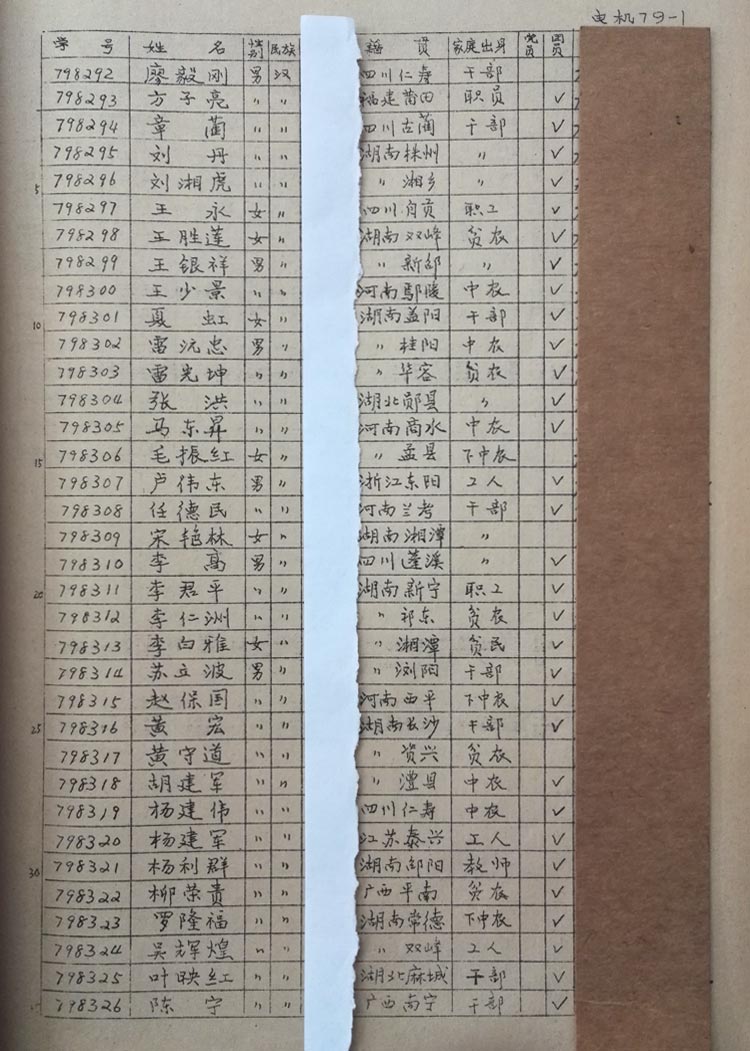 电机79-1
学号 姓名 性别 民族 籍贯 家庭出身 党员 团员
798292 廖毅刚 男 汉 四川仁寿 干部
798293 方子亮 〃 〃 福建莆田 职员 ✓
798294 章蔺 〃 〃 四川古蔺 干部 ✓
798295 刘丹 〃 〃 湖南株州 〃 ✓
5 798296 刘湘虎 〃 〃 〃 湘乡 〃 ✓
798297 王永 女 〃 四川自贡 职工 ✓
798298 王胜莲 女 〃 湖南双峰 贫农 ✓
798299 王银祥 男 〃 〃 新邵 〃 ✓
798300 王少景 〃 〃 河南鄢陵 中农 ✓
10 798301 夏虹 女 〃 湖南益阳 干部 ✓
798302 雷沅忠 男 〃 〃 桂阳 中农 ✓
798303 雷光坤 〃 〃 〃 华容 贫农 ✓
798304 张洪 〃 〃 湖北郧县 〃 ✓
798305 马东昇 〃 〃 河南商水 中农 ✓
15 798306 毛振红 女 〃 〃 孟县 下中农
798307 卢伟东 男 〃 浙江东阳 工人 ✓
798308 任德民 〃 〃 河南兰考 干部 ✓
798309 宋艳林 女 〃 湖南湘潭 〃
798310 李高 男 〃 四川蓬溪 〃 ✓
20 798311 李君平 〃 〃 湖南新宁 职工 ✓
798312 李仁洲 〃 〃 〃 祁东 贫农 ✓
798313 李白雅 女 〃 〃 湘潭 贫民 ✓
798314 苏立波 男 〃 〃 浏阳 干部 ✓
798315 赵保国 〃 〃 河南西平 下中农 ✓
25 798316 黄宏 〃 〃 湖南长沙 干部 ✓
798317 黄守道 〃 〃 〃 资兴 贫农
798318 胡建军 〃 〃 〃 澧县 中农 ✓
798319 杨建伟 〃 〃 四川仁寿 中农 ✓
798320 杨建军 〃 〃 江苏泰兴 工人 ✓
30 798321 杨利群 〃 〃 湖南邵阳 教师 ✓
798322 柳荣贵 〃 〃 广西平南 贫农 ✓
798323 罗隆福 〃 〃 湖南常德 下中农 ✓
798324 吴辉煌 〃 〃 〃 双峰 工人 ✓
798325 叶映红 〃 〃 湖北麻城 干部 ✓
798326 陈宁 〃 〃 广西南宁 干部 ✓